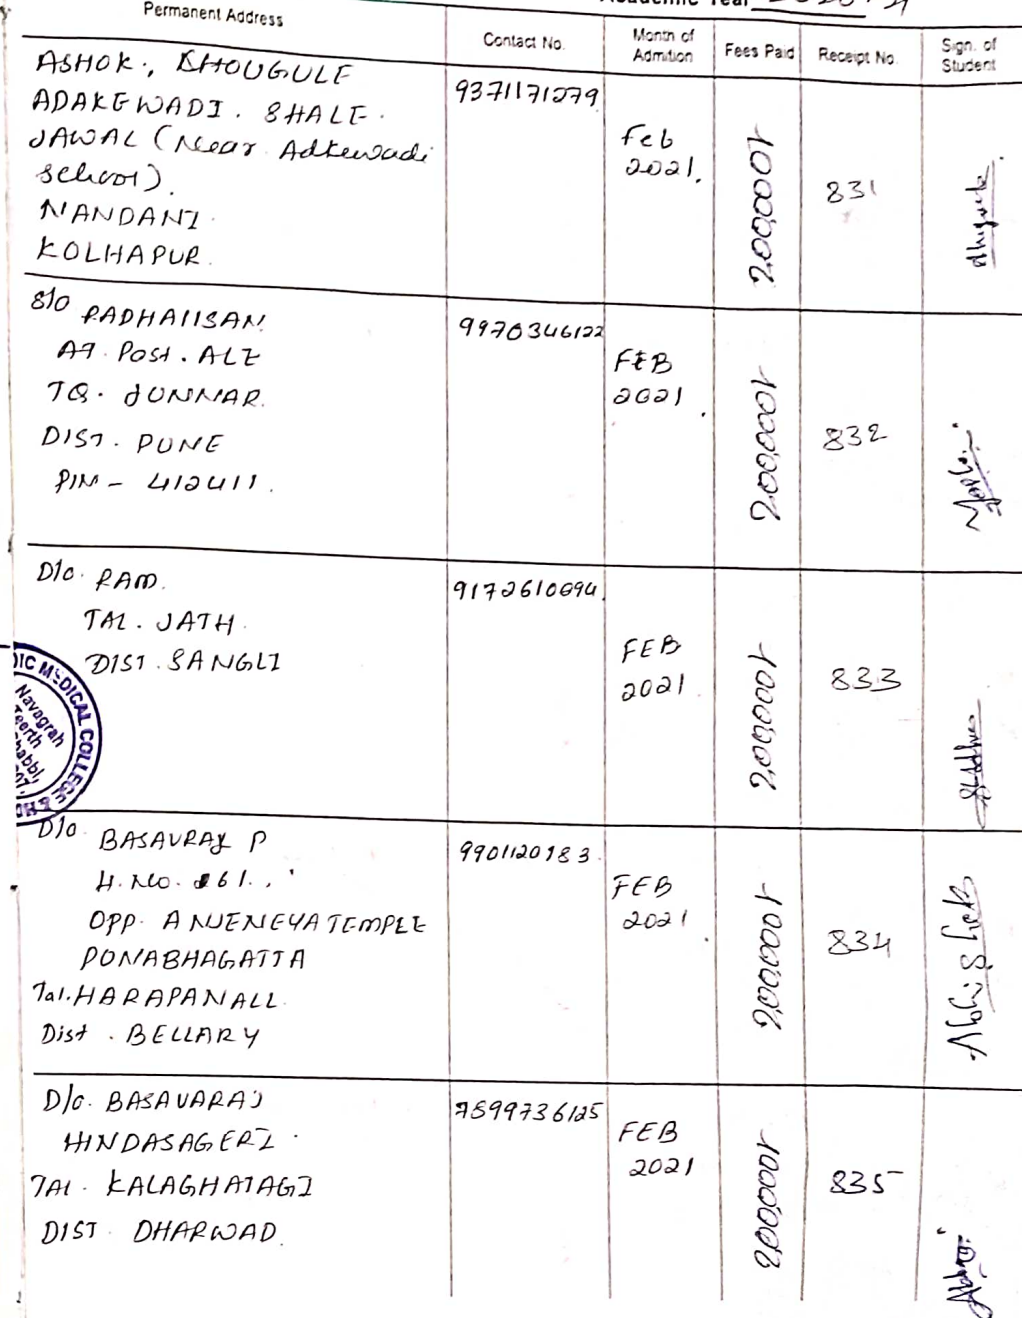 Academic Year 2020-21
Permanent Address
Contact No.
Month of
Admition
Fees Paid
Receipt No.
Sign. of
Student
ASHOK., CHOUGULE
ADAKEWADI. SHALE.
JAWAL (Near Adkewadi
School).
NANDANI.
KOLHAPUR.
9371171279
Feb
2021.
2,00,000/-
831
S/O RADHAIISAN
AT. Post. ALE
TQ. JUNNAR.
DIST. PUNE
PIN - 412411.
9970346122
FEB
2021.
2,00,000/-
832
D/o. RAM.
TAL. JATH.
DIST. SANGLI
9172610694.
FEB
2021.
2,00,000/-
833
DIC MEDICAL COLLEGE & HO
Navagrah
Teerth
D/o. BASAVRAJ P
H. NO. 861.,
OPP. ANJENEYA TEMPLE
PONABHAGATTA
Tal. HARAPANALL
Dist. BELLARY
9901120183.
FEB
2021.
2,00,000/-
834
Abhishek
D/o. BASAVARAJ
HINDASAGERI.
TAl. KALAGHATAGI
DIST. DHARWAD.
7899736125
FEB
2021
2,00,000/-
835